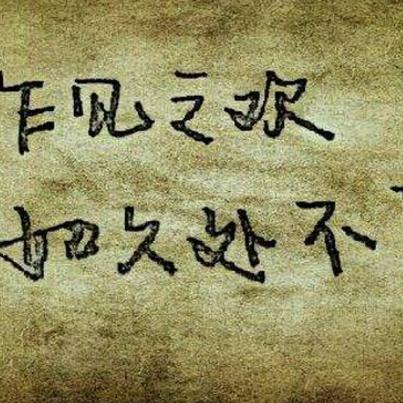 乍见之欢
如久处不